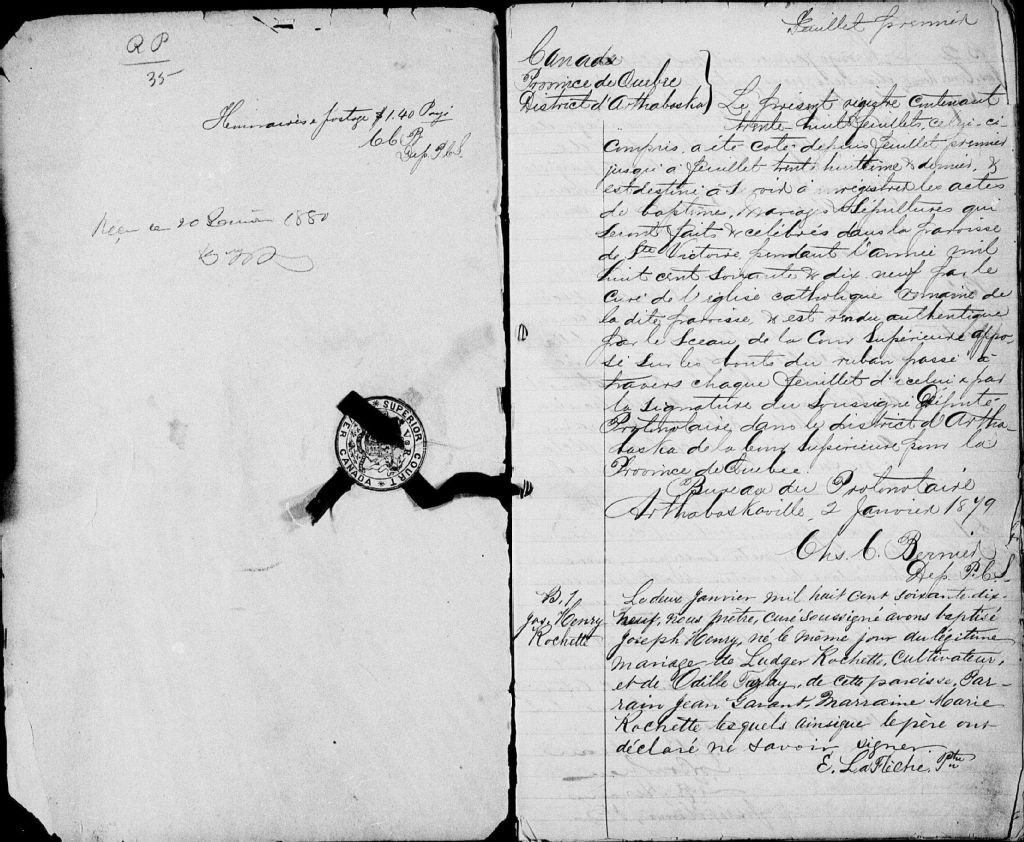 R P
35
Honoraires & postage $1.40 Payé
CCB
Dep. P.C.S.
Reçu ce 20 1880
SUPERIOR COURT
LOWER CANADA
Feuillet premier
Canada
Province de Québec
District d'Arthabaska
Le présent registre contenant
trente-huit feuillets, celui-ci
compris, a été coté depuis feuillet premier
jusqu'à feuillet trente huitième & dernier, &
est destiné à servir à enregistrer les actes
de baptême, Mariages & Sépultures qui
seront faits & célébrés dans la paroisse
de Ste Victoire, pendant l'année mil
huit cent soixante & dix neuf par le
Curé de l'église catholique romaine de
la dite paroisse, & est rendu authentique
par le Sceau de la Cour Supérieure appo-
sé sur les bouts du ruban passé à
travers chaque feuillet d'icelui & par
la signature du Soussigné Député-
Protonotaire, dans le district d'Artha-
baska de la Cour Supérieure pour la
Province de Québec.
Bureau du Protonotaire
Arthabaskaville, 2 Janvier 1879
Chs. C. Bernier
Dep. P.C.S
B. 1
Jos. Henry
Rochette
Le deux janvier mil huit cent soixante dix-
neuf, nous prêtre, curé soussigné avons baptisé
Joseph Henry, né le même jour du légitime
mariage de Ludger Rochette, cultivateur,
et de Odille, de cette paroisse. Par-
rain Jean Savant, Marraine Marie
Rochette lesquels ainsique le père ont
déclaré ne savoir signer
E. LaFlèche, Ptre